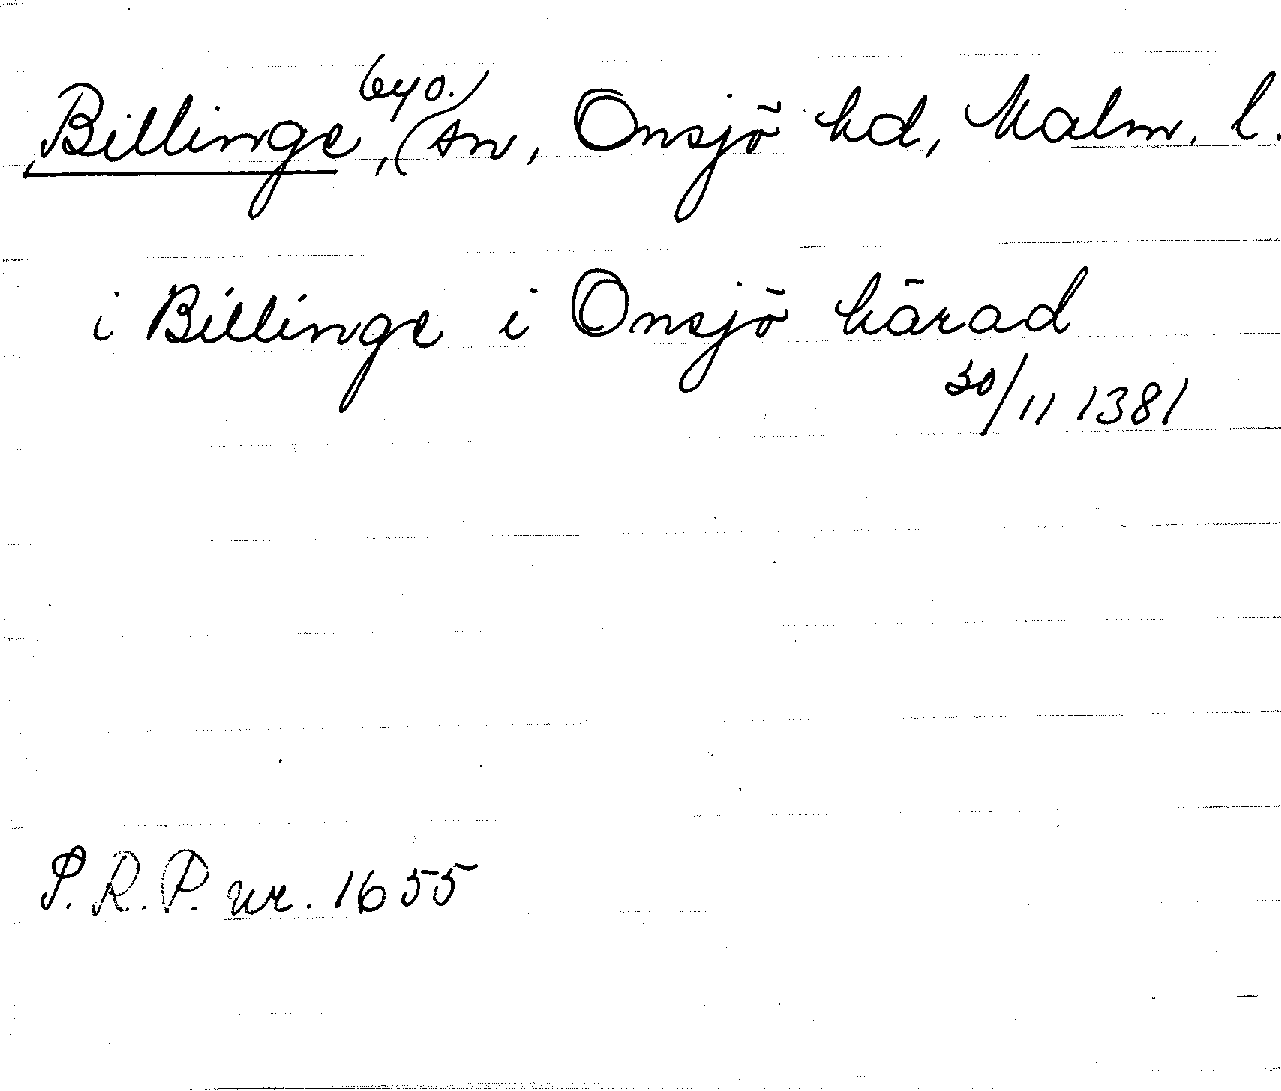 Billinge, (byo.) sn, Onsjö hd, Malm. l.
i Billinge i Onsjö härad
30/11 1381
P.R.P. nr. 1655